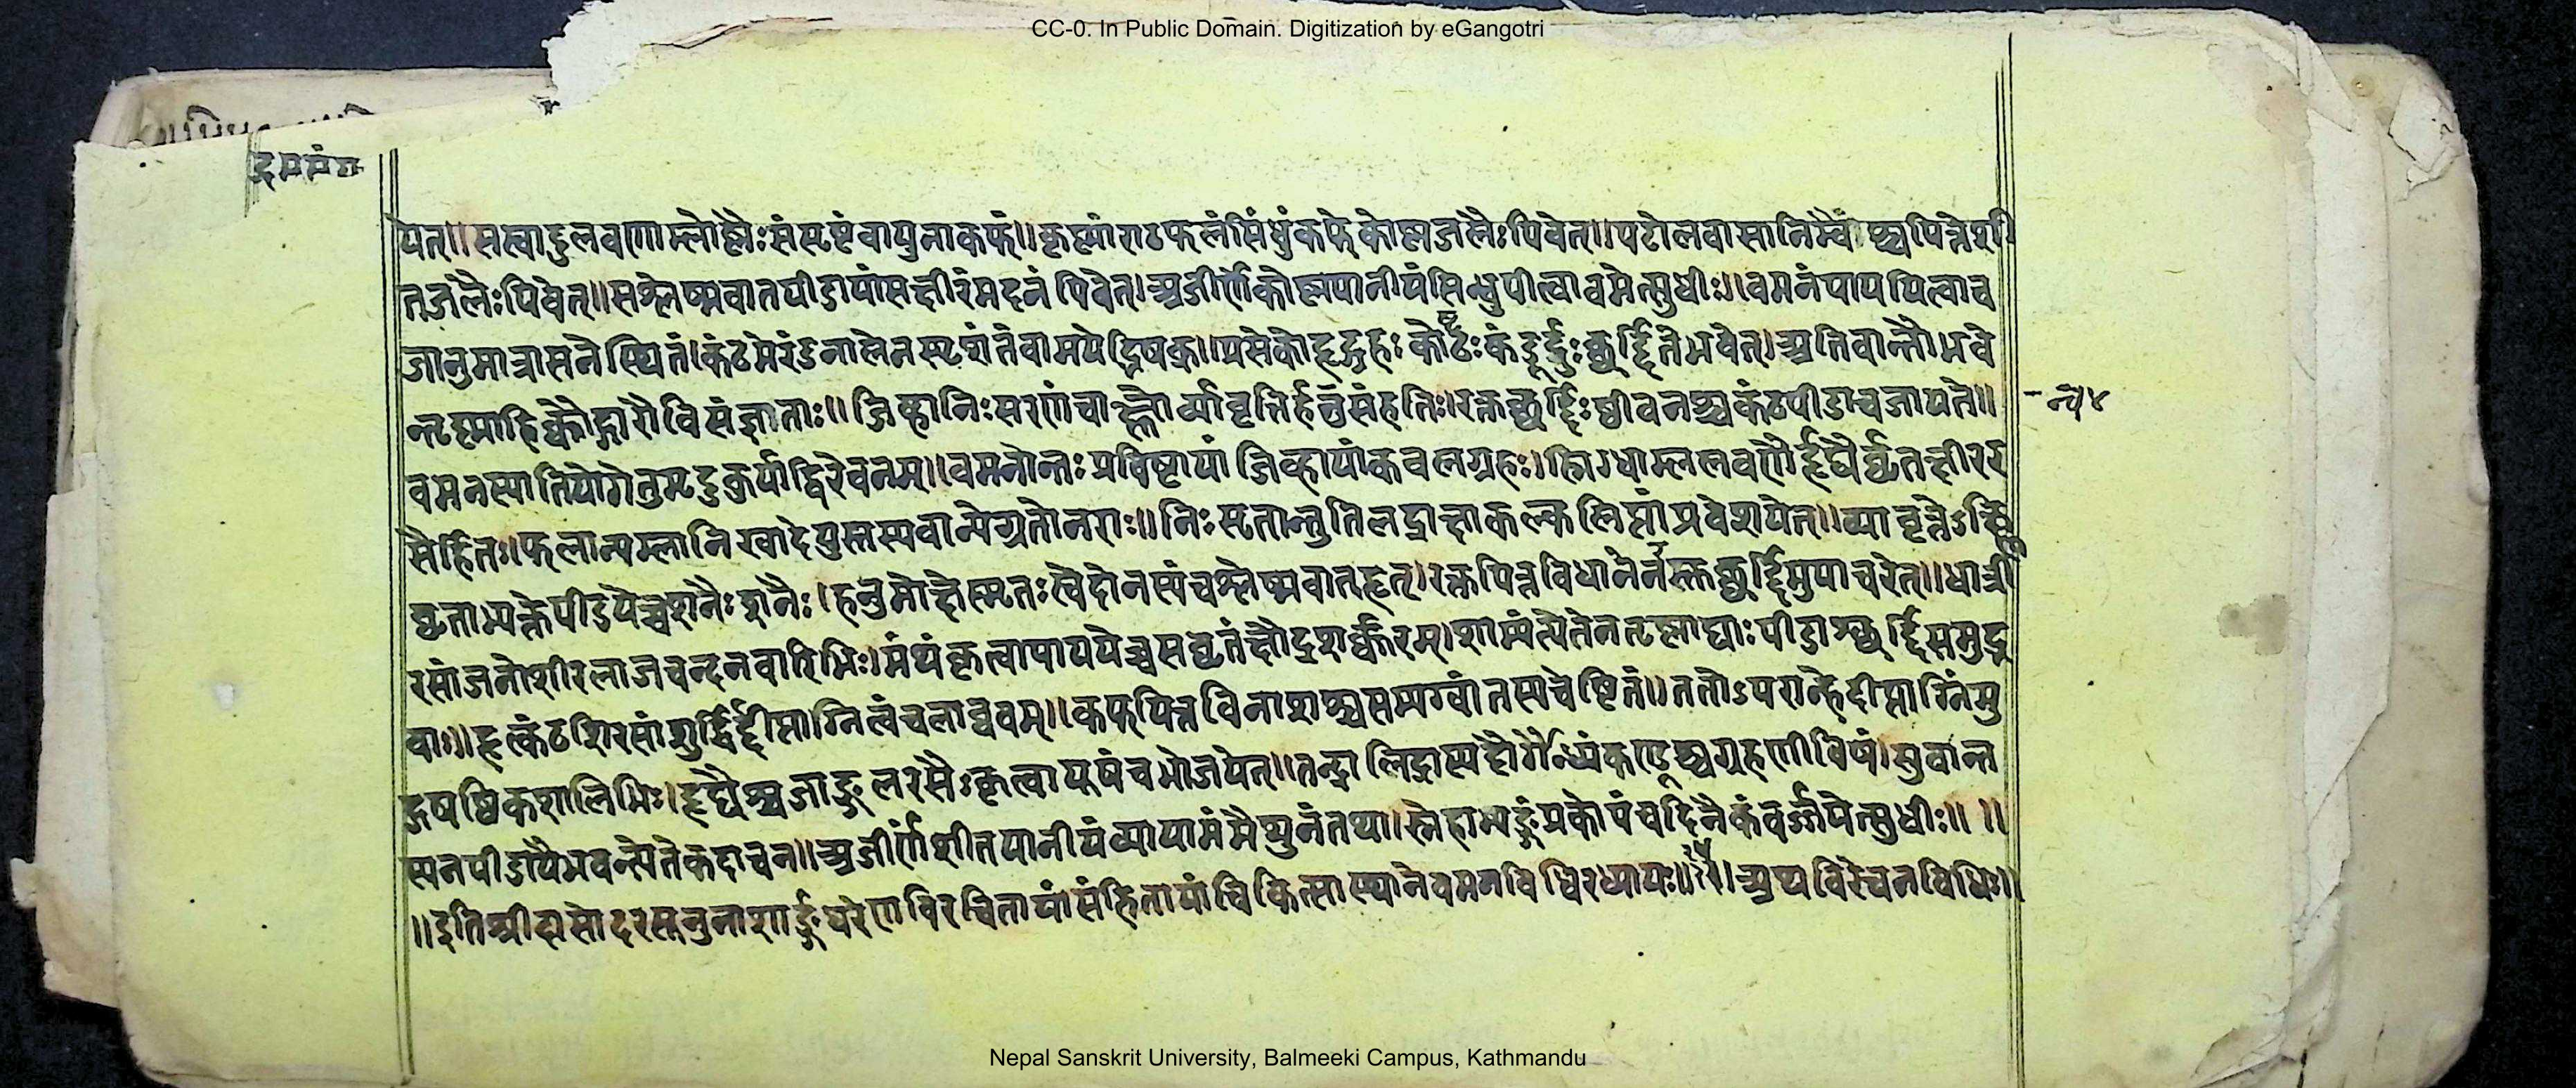 CC-0. In Public Domain. Digitization by eGangotri
येत्॥सस्वादुलवणाम्लोष्णैःसंसृष्टंवायुनाकफं॥कृष्णांराठफलंसिंधुंकफेकोष्णजलैःपिवेत्॥पटोलवासानिम्वैश्चपित्तेशी
तजलैःपिवेत्॥सश्लेष्मवातपीडायांसक्षीरंमदनंपिवेत्।अजीर्णेकोष्णपानीयंसिन्धुपीत्वावमेत्सुधीः॥वमनंपाययित्वाच
जानुमात्रासनेस्थितं।कंठमेरंडनालेनस्पृशंतंवामयेद्भिषक्॥प्रसेकोहृद्ग्रहःकोठःकंडूर्दुःछर्द्दितेभवेत्।अतिवान्तेभवे
त्तृष्णाहिक्कोद्गारौविसंज्ञाताः॥जिह्वानिःसरणंचाक्ष्णोर्व्यावृत्तिर्हनुसंहतिः।रक्तछर्द्दिःष्ठीवनश्चकंठपीडाचजायते॥
वमनस्यातियोगेतुमृदुकुर्याद्विरेचनम्॥वमनोन्तःप्रविष्टायांजिव्हायांकवलग्रहः।स्निग्धाम्ललवणैर्हृद्यैर्घृतक्षीरर
सैर्हितः।फलान्यम्लानिखादेयुस्तस्यवान्येग्रतोनराः॥निःसृतान्तुतिलद्राक्षाकल्कलिप्तांप्रवेशयेत्॥व्यावृत्तेऽक्ष्णि
घृताभ्यक्तेपीडयेच्चशनैःशनैः।हनुमोक्षेस्मृतःस्वेदोनस्यंचश्लेष्मवातहृत्।रक्तपित्तविधानेनरक्तछर्द्दिमुपाचरेत्॥धात्री
रसांजनोशीरलाजचन्दनवारिभिः।मंथंकृत्वापाययेच्चसघृतंक्षौद्रशर्करम्।शाम्यंत्येतेनतृष्णाद्याःपीडाश्छर्द्दिसमुद्भ
वाः॥हृत्कंठशिरसांशुर्द्धिर्द्दीप्ताग्नित्वंचलाघवम्॥कफपित्तविनाशश्चसम्यग्वांतस्यचेष्टितं॥ततोऽपरान्हेदीप्ताग्निंमु
द्गषष्ठिकशालिभिः।हृद्यैश्चजाङ्गुलरसैःकृत्वायूषंचभोजयेत्॥तन्द्रालिद्रास्यदौर्गन्ध्यंकण्डूश्चग्रहणीविषं।सुवान्त
स्यनपीडायैभवन्त्येतेकदाचन॥अजीर्णंशीतपानीयंव्यायामंमैथुनंतथा।स्नेहाभ्यङ्गंप्रकोपंचदिनैकंवर्ज्जयेत्सुधीः॥॥
॥इतिश्रीदामोदरसूनुनाशार्ङ्गधरेणविरचितायांसंहितायांचिकित्सास्थानेवमनविधिरध्यायः॥३॥अथविरेचनविधिः॥
Nepal Sanskrit University, Balmeeki Campus, Kathmandu